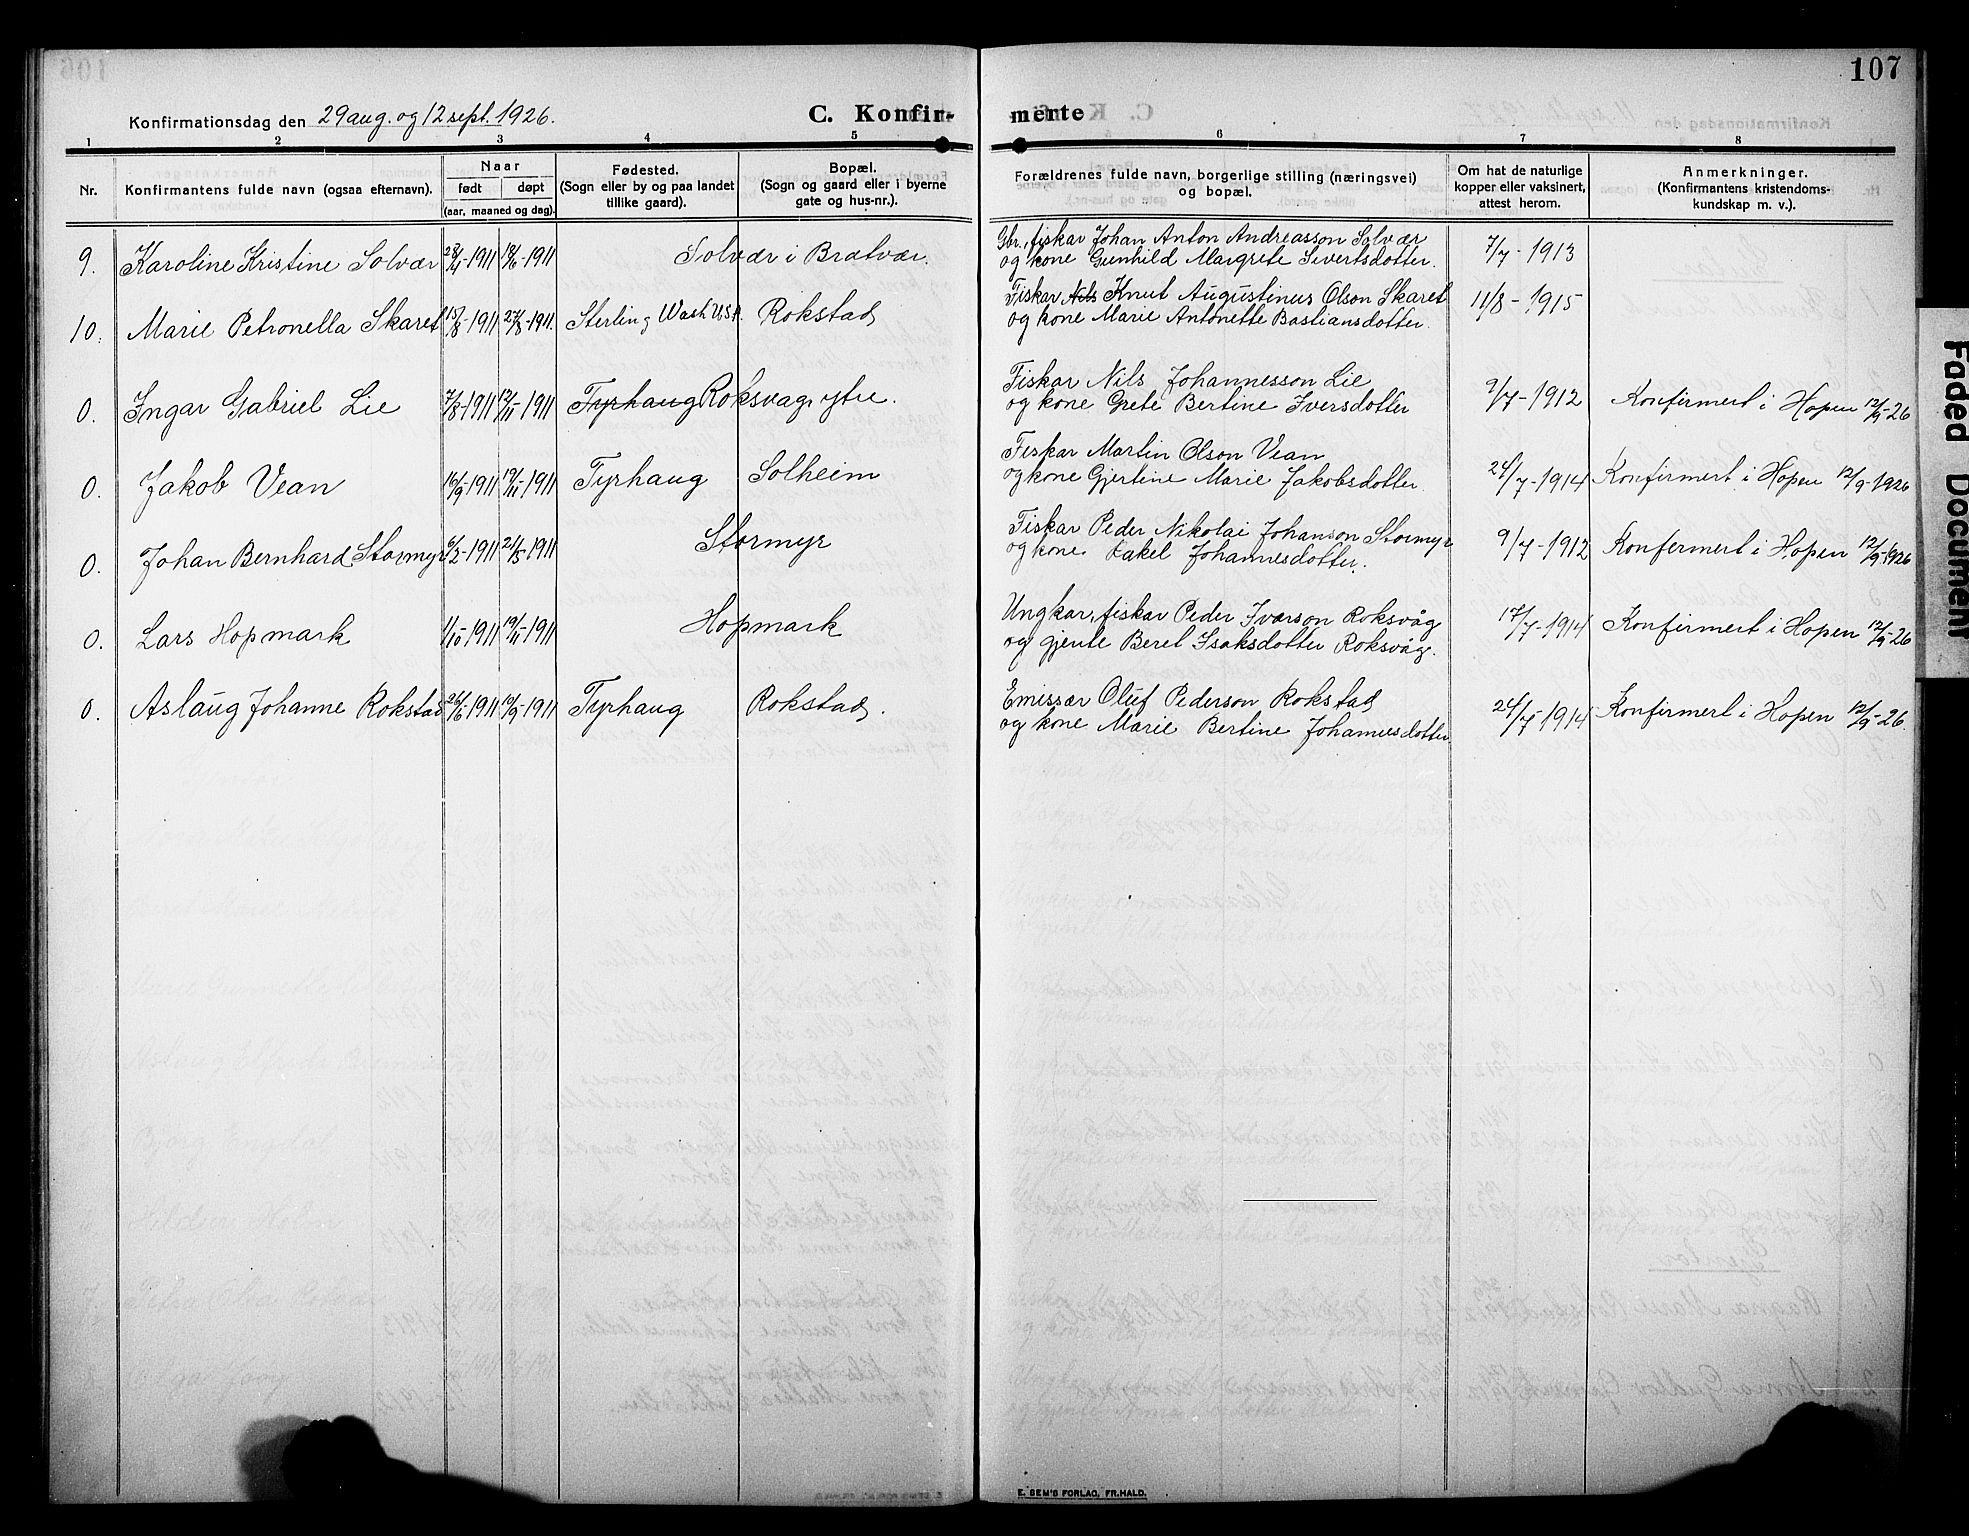 107
Konfirmationsdag den 29 aug. og 12 sept. 1926.
C. Konfir-merte
1 2 3 4 5 6 7 8
Nr.
Konfirmantens fulde navn (ogsaa efternavn).
Naar
født døpt
(aar, maaned og dag).
Fødested.
(Sogn eller by og paa landet
tillike gaard).
Bopæl.
(Sogn og gaard eller i byerne
gate og hus-nr.).
Forældrenes fulde navn, borgerlige stilling (næringsvei)
og bopæl.
Om hat de naturlige
kopper eller vaksinert,
attest herom.
Anmerkninger.
(Konfirmantens kristendoms-
kundskap m. v.).
9. Karoline Kristine Solvær 28/4-1911 18/6-1911 Solvær i Bratvær.
Gbr., fiskar Johan Anton Andreasson Solvær
og kone Gunhild Margrete Sivertsdotter. 7/7-1913
10. Marie Petronella Skaret 15/8-1911 27/8-1911. Sterling Wash USA. Rokstad
Fiskar Nils Knut Augustinus Olson Skaret
og kone Marie Antonette Bastiansdotter. 11/8-1915
0. Ingar Gabriel Lie 7/8-1911 12/11-1911 Tyrhaug Roksvag, ytre.
Fiskar Nils Johannesson Lie
og kone Grete Bertine Iversdotter 9/7-1912 Konfirmert i Hopen 12/9-26
0. Jakob Vean 16/9-1911 19/11-1911 Tyrhaug Solheim
Fiskar Martin Olson Vean
og kone Gjertine Marie Jakobsdotter 24/7-1914 Konfirmert i Hopen 12/9-1926
0. Johan Bernhard Stormyr -1911 21/5-1911 Stormyr
Fiskar Peder Nikolai Johanson Stormyr
og kone Rakel Johannesdotter. 9/7-1912 Konfermert i Hopen 12/9-1926
0. Lars Hopmark 1/10-1911 19/11-1911 Hopmark
Ungkar, fiskar Peder Ivarson Roksvåg
og gjente Beret Isaksdotter Roksvåg. 17/7-1914 Konfirmert i Hopen 12/9-26
0. Aslaug Johanne Rokstad 26/6-1911 10/9-1911 Tyrhaug Rokstad.
Emissær Oluf Pederson Rokstad
og kone Marie Bertine Johannesdotter 24/7-1914 Konfirmert i Hopen 12/9-26.
E. SEM'S FORLAG, FR.HALD.
Faded Document